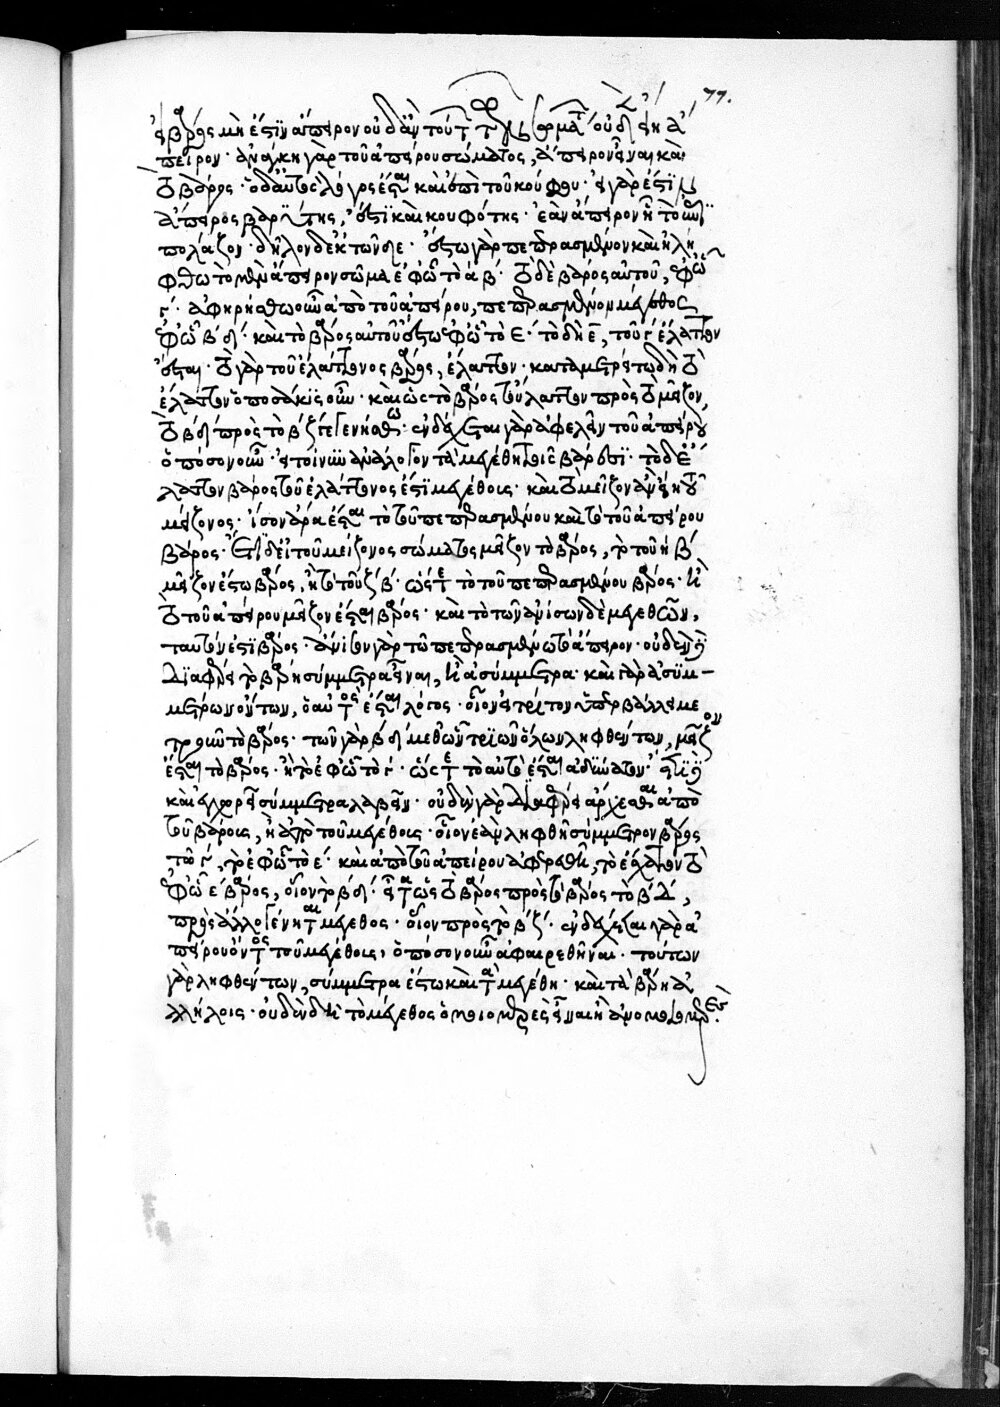 εἰ βάρος μὴ ἔστιν ἄπειρον οὐδ' ἂν τούτων τῶν σωμάτων οὐδὲν εἴη ἄ
πειρον· ἀνάγκη γὰρ τοῦ ἀπείρου σώματος, ἄπειρον εἶναι καὶ
τὸ βάρος· ὁ δ' αὐτὸς λόγος ἔσται καὶ ἐπὶ τοῦ κούφου· εἰ γάρ ἐστιν
ἄπειρος βαρύτης, ἔστι καὶ κουφότης· ἐὰν ἄπειρον ᾖ τὸ ἐπι
πολάζον· δῆλον δ' ἐκ τῶνδε· ἔστω γὰρ πεπερασμένον καὶ εἰλή
φθω τὸ μὲν ἄπειρον σῶμα ἐφ' ᾧ τὸ α β· τὸ δὲ βάρος αὐτοῦ, ἐφ' ᾧ
γ· ἀφῃρήσθω οὖν ἀπὸ τοῦ ἀπείρου, πεπερασμένον μέγεθος
ἐφ' ᾧ β δ· καὶ τὸ βάρος αὐτοῦ ἔστω ἐφ' ᾧ τὸ ε· τὸ δὴ ε, τοῦ γ ἔλαττον
ἔσται· τὸ γὰρ τοῦ ἐλάττονος βάρος, ἔλαττον· καταμετρείτω δὴ τὸ
ἔλαττον ὁποσακισοῦν· καὶ ὡς τὸ βάρος τοὔλαττον πρὸς τὸ μεῖζον,
τὸ β δ πρὸς τὸ β ζ γεγενήσθω· ἐνδέχεται γὰρ ἀφελεῖν τοῦ ἀπείρου
ὁποσονοῦν· εἰ τοίνυν ἀνάλογον τὰ μεγέθη τοῖς βάρεσι· τὸ δ' ἔ
λαττον βάρος τοῦ ἐλάττονος ἐστὶ μεγέθους· καὶ τὸ μεῖζον ἂν εἴη τοῦ
μείζονος· ἴσον ἄρα ἔσται τὸ τοῦ πεπερασμένου καὶ τὸ τοῦ ἀπείρου
βάρος· ἔτι δ' εἰ τοῦ μείζονος σώματος μεῖζον τὸ βάρος, τὸ τοῦ η β
μεῖζον ἔστω βάρος, ἢ τὸ τοῦ ζ β· ὥστε τὸ τοῦ πεπερασμένου βάρος· ἢ
τὸ τοῦ ἀπείρου μεῖζον ἔσται βάρος· καὶ τὸ τῶν ἀνίσων δὲ μεγεθῶν,
ταυτόν ἐστι βάρος· ἄνισον γὰρ τῷ πεπερασμένῳ τὸ ἄπειρον· οὐδὲν δὲ
διαφέρει τὰ βάρη σύμμετρα εἶναι, ἢ ἀσύμμετρα· καὶ γὰρ ἀσυμ-
μέτρων ὄντων, ὁ αὐτὸς ἔσται λόγος· οἷον εἰ τρίτον ὑπερβάλλει με
τρούν τὸ βάρος· τῶν γὰρ β δ μεγεθῶν τριῶν ὅλων ληφθέντων, μεῖζον
ἔσται τὸ βάρος· ἢ τὸ ἐφ' ᾧ τὸ γ· ὥστε τὸ αὐτὸ ἔσται ἀδύνατον· ἔτι δὲ
καὶ ἐγχωρεῖ σύμμετρα λαβεῖν· οὐδὲν γὰρ διαφέρει ἄρχεσθαι ἀπὸ
τοῦ βάρους, ἢ ἀπὸ τοῦ μεγέθους· οἷον ἐὰν ληφθῇ σύμμετρον βάρος
τῷ γ, τὸ ἐφ' ᾧ τὸ ε· καὶ ἀπὸ τοῦ ἀπείρου ἀφαιρεθῇ, τὸ ἔχον τὸ
ἐφ' ᾧ ε βάρος, οἷον τὸ β δ· εἶτα ὡς τὸ βάρος πρὸς τὸ βάρος τὸ β δ,
πρὸς ἄλλο γένηται μέγεθος· οἷον πρὸς τὸ β ζ· ἐνδέχεται γὰρ ἀ
πείρου ὄντος τοῦ μεγέθους, ὁποσονοῦν ἀφαιρεθῆναι· τούτων
γὰρ ληφθέντων, σύμμετρα ἔστω καὶ τὰ μεγέθη· καὶ τὰ βάρη ἀ
λλήλοις· οὐδὲν δὲ τὸ μέγεθος ὁμοιομερὲς εἶναι ἢ ἀνομοιομερές·
77.